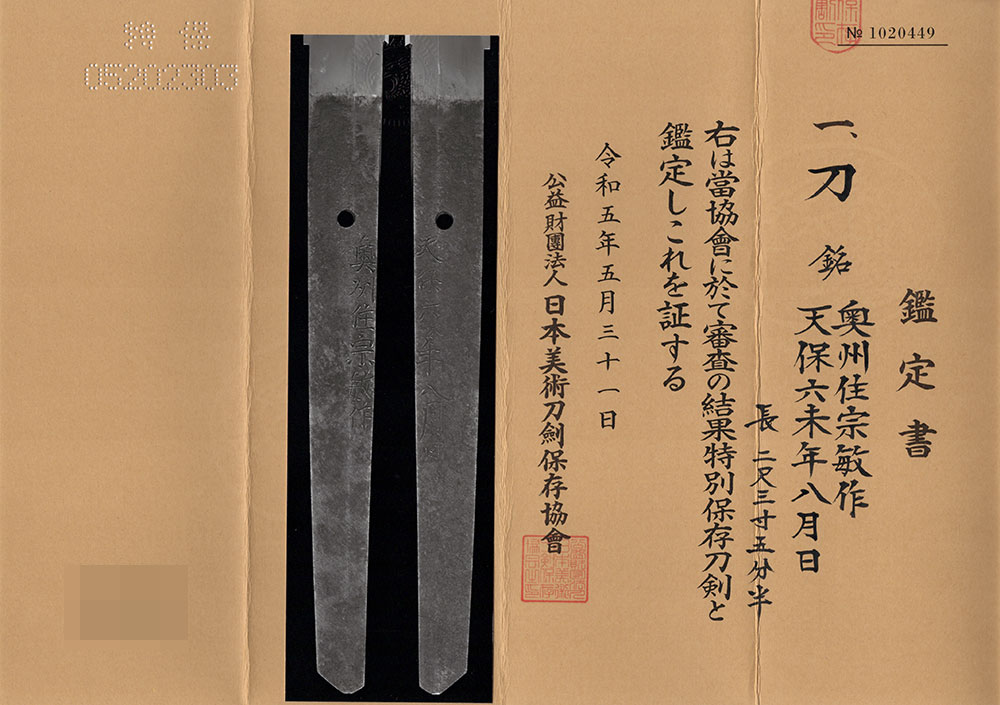 № 1020449
鑑定書
一、刀 銘 奥州住宗敏作
天保六未年八月日
長 二尺三寸五分半
右は當協會に於て審査の結果特別保存刀剣と
鑑定しこれを証する
令和五年五月三十一日
公益財團法人 日本美術刀劍保存協會
奥州住宗敏作
05202303